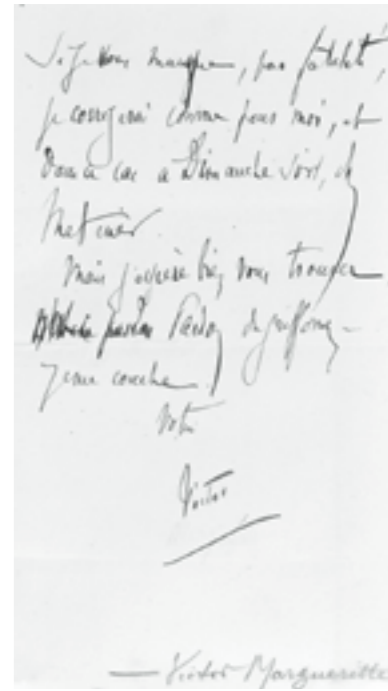 Si je vous manque, par fatalité,
je corrigerai comme pour moi, et
Dans ce cas à Dimanche soir, ch
Metimer.
Mais j'espère bien vous trouver
Pardon du griffonnage
je me couche
Votre
Victor
— Victor Margueritte